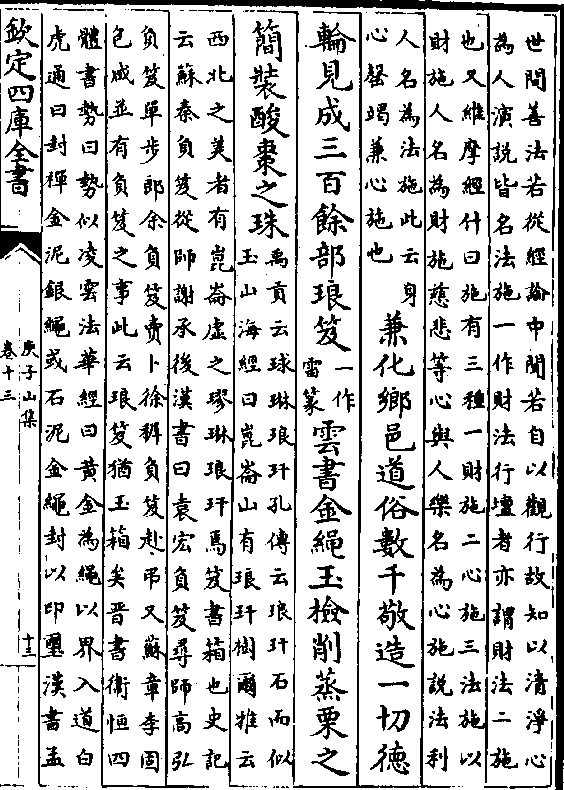 世間善法若從經論中聞若自以觀行故知以清淨心
為人演説皆名法施一作財法行壇者亦謂財法二施
也又維摩經什曰施有三種一財施二心施三法施以
財施人名為財施慈悲等心與人樂名為心施説法利
人名為法施此云身
心罄竭兼心施也
兼化鄉邑道俗數千敬造一切德
輪見成三百餘部琅笈
一作
雷篆
雲書金繩玉檢削蒸栗之
簡裝酸棗之珠
禹貢云球琳琅玕孔傳云琅玕石而似
玉山海經曰崑崙山有琅玕樹爾雅云
西北之美者有崑崙虛之璆琳琅玕馬笈書箱也史記
云蘇秦負笈從師謝承後漢書曰袁宏負笈尋師高弘
負笈單步郎余負笈賣卜徐穉負笈赴弔又蘇章李固
包咸並有負笈之事此云琅笈猶玉箱矣晉書衞恒四
體書勢曰勢似凌雲法華經曰黃金為繩以界入道白
虎通曰封禪金泥銀繩或石泥金繩封以印璽漢書孟
欽定四庫全書
庾子山集
卷十三
十三